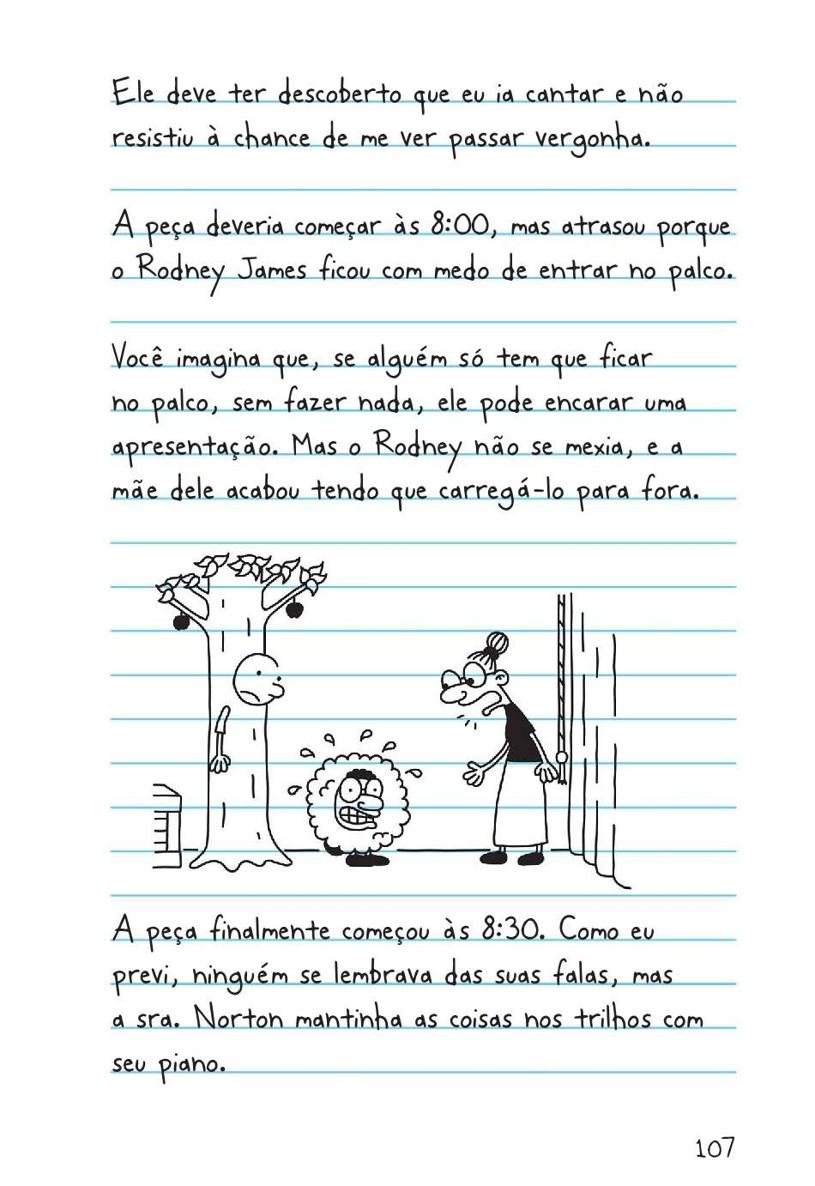 Ele deve ter descoberto que eu ia cantar e não
resistiu à chance de me ver passar vergonha.
A peça deveria começar às 8:00, mas atrasou porque
o Rodney James ficou com medo de entrar no palco.
Você imagina que, se alguém só tem que ficar
no palco, sem fazer nada, ele pode encarar uma
apresentação. Mas o Rodney não se mexia, e a
mãe dele acabou tendo que carregá-lo para fora.
A peça finalmente começou às 8:30. Como eu
previ, ninguém se lembrava das suas falas, mas
a sra. Norton mantinha as coisas nos trilhos com
seu piano.
107